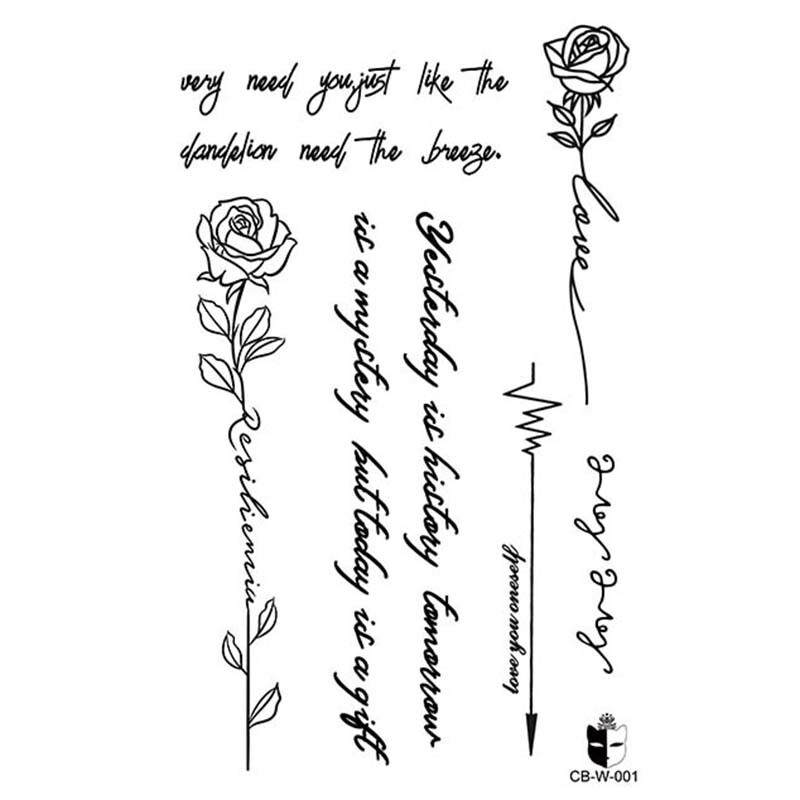 very need you,just like the
dandelion need the breeze.
love
Yesterday is history tomorrow
is a mystery but today is a gift
love you oneself
CB-W-001